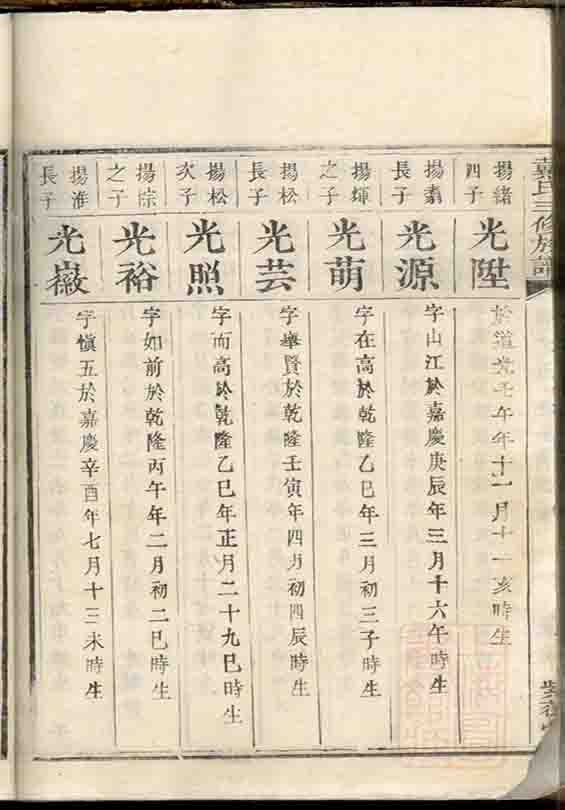 氏三修族譜
揚緒
四子
光陞
於道光壬午年十一月十一亥時生
揚
長子
光源
字山江於嘉慶庚辰年三月十六午時生
揚輝
之子
光萌
字在高於乾隆乙巳年三月初三子時生
揚松
長子
光芸
字舉賢於乾隆壬寅年四月初四辰時生
揚松
次子
光照
字而高於乾隆乙巳年正月二十九巳時生
揚綜
之子
光裕
字如前於乾隆丙午年二月初二巳時生
揚淮
長子
光嶶
字愼五於嘉慶辛酉年七月十三未時生